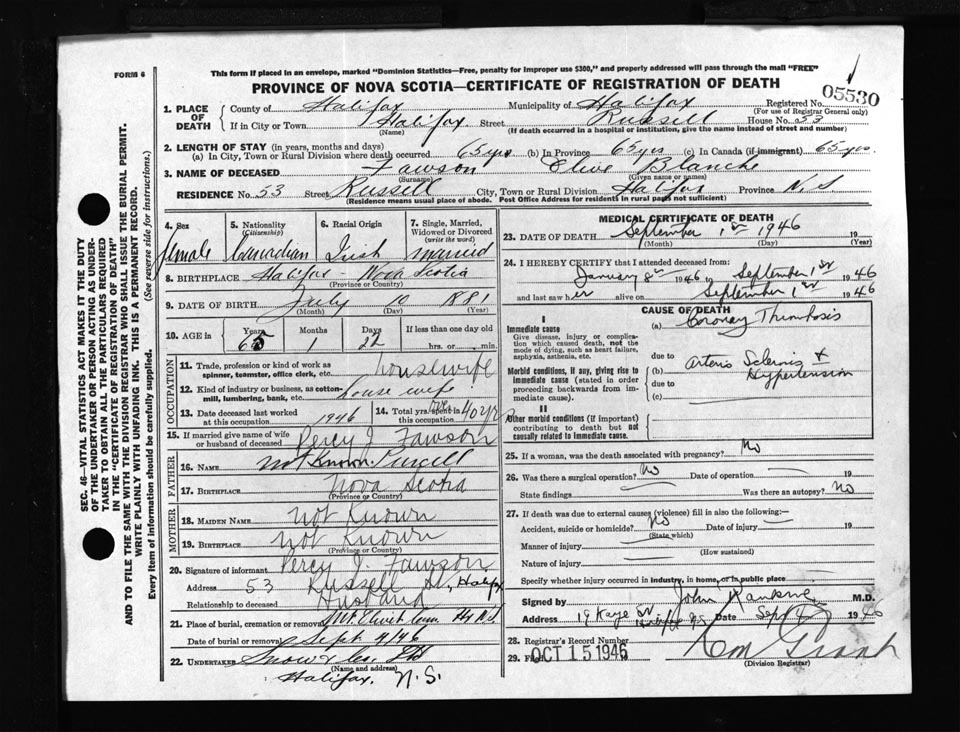 FORM 6
This form if placed in an envelope, marked "Dominion Statistics—Free, penalty for improper use $300," and properly addressed will pass through the mail "FREE"
PROVINCE OF NOVA SCOTIA—CERTIFICATE OF REGISTRATION OF DEATH
05530
1. PLACE OF DEATH
County of Halifax Municipality of Halifax Registered No.
(For use of Registrar General only)
If in City or Town Halifax Street Russell House No. 53
(Name) (If death occurred in a hospital or institution, give the name instead of street and number)
2. LENGTH OF STAY (in years, months and days)
(a) In City, Town or Rural Division where death occurred 65 yrs (b) In Province 65 yrs (c) In Canada (if immigrant) 65 yrs.
3. NAME OF DECEASED Fawson Elive Blanche
(Surname) (Given name or names)
RESIDENCE No. 53 Street Russell City, Town or Rural Division Halifax Province N.S
(Residence means usual place of abode. Post Office Address for residents in rural parts not sufficient)
4. Sex
female
5. Nationality
(Citizenship)
Canadian
6. Racial Origin
Irish
7. Single, Married, Widowed or Divorced
(write the word)
married
8. BIRTHPLACE Halifax - Nova Scotia
(Province or Country)
9. DATE OF BIRTH July 10 1881
(Month) (Day) (Year)
10. AGE in Years Months Days If less than one day old
65 1 22 hrs. or min.
OCCUPATION
11. Trade, profession or kind of work as spinner, teamster, office clerk, etc. housewife
12. Kind of industry or business, as cotton-mill, lumbering, bank, etc. house wife
13. Date deceased last worked at this occupation 1946
14. Total yrs. spent in this occ. 40 yrs
15. If married give name of wife or husband of deceased Percy J. Fawson
FATHER
16. NAME not Known Purcell
17. BIRTHPLACE Nova Scotia
(Province or Country)
MOTHER
18. MAIDEN NAME not Known
19. BIRTHPLACE not Known
(Province or Country)
20. Signature of informant Percy J. Fawson
Address 53 Russell St., Halifax
Relationship to deceased Husband
21. Place of burial, cremation or removal Mt. Olivet Cem.
Date of burial or removal Sept 4/46
22. UNDERTAKER Snow & Co Ltd
(Name and address)
Halifax, N.S.
MEDICAL CERTIFICATE OF DEATH
23. DATE OF DEATH September 1st 1946 19
(Month) (Day) (Year)
24. I HEREBY CERTIFY that I attended deceased from
January 8th 1946 to September 1st 1946
and last saw her alive on September 1st 1946
CAUSE OF DEATH
I
Immediate cause
Give disease, injury or complication which caused death, not the mode of dying, such as heart failure, asphyxia, asthenia, etc.
(a) Coronary Thrombosis
due to
Morbid conditions, if any, giving rise to immediate cause (stated in order proceeding backwards from immediate cause).
(b) Arterio Sclerosis & Hypertension
due to
(c)
II
Other morbid conditions (if important) contributing to death but not causally related to immediate cause.
25. If a woman, was the death associated with pregnancy? No
26. Was there a surgical operation? No Date of operation 19
State findings Was there an autopsy? No
27. If death was due to external causes (violence) fill in also the following:—
Accident, suicide or homicide? No Date of injury 19
(State which)
Manner of injury
(How sustained)
Nature of injury
Specify whether injury occurred in industry, in home, or in public place
Signed by John Rankine M.D.
Address 19 Kaye St Halifax N.S Date Sept 1946
28. Registrar's Record Number
29. Filed OCT 15 1946
(Division Registrar)
SEC. 46—VITAL STATISTICS ACT MAKES IT THE DUTY
OF THE UNDERTAKER OR PERSON ACTING AS UNDER-
TAKER TO OBTAIN ALL THE PARTICULARS REQUIRED
IN THE "CERTIFICATE OF REGISTRATION OF DEATH"
AND TO FILE THE SAME WITH THE DIVISION REGISTRAR WHO SHALL ISSUE THE BURIAL PERMIT.
WRITE PLAINLY WITH UNFADING INK. THIS IS A PERMANENT RECORD.
Every item of information should be carefully supplied. (See reverse side for instructions.)